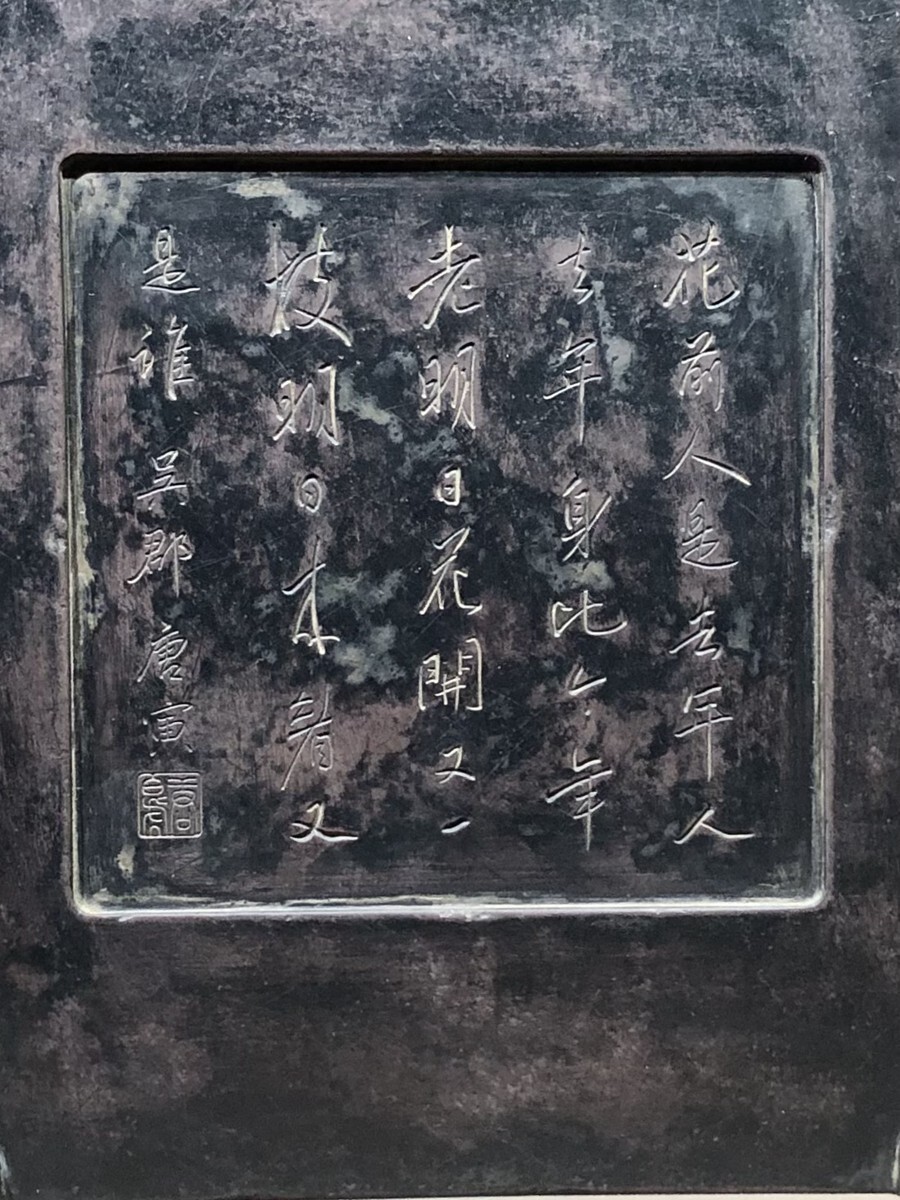 花前人是去年人
去年身比今年
老明日花開又一
枝明日来看又
是誰 吳郡 唐寅